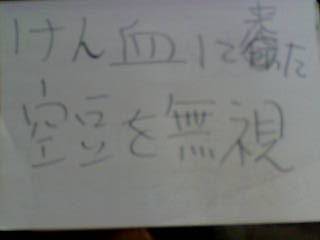 けん血に た
空豆を無視